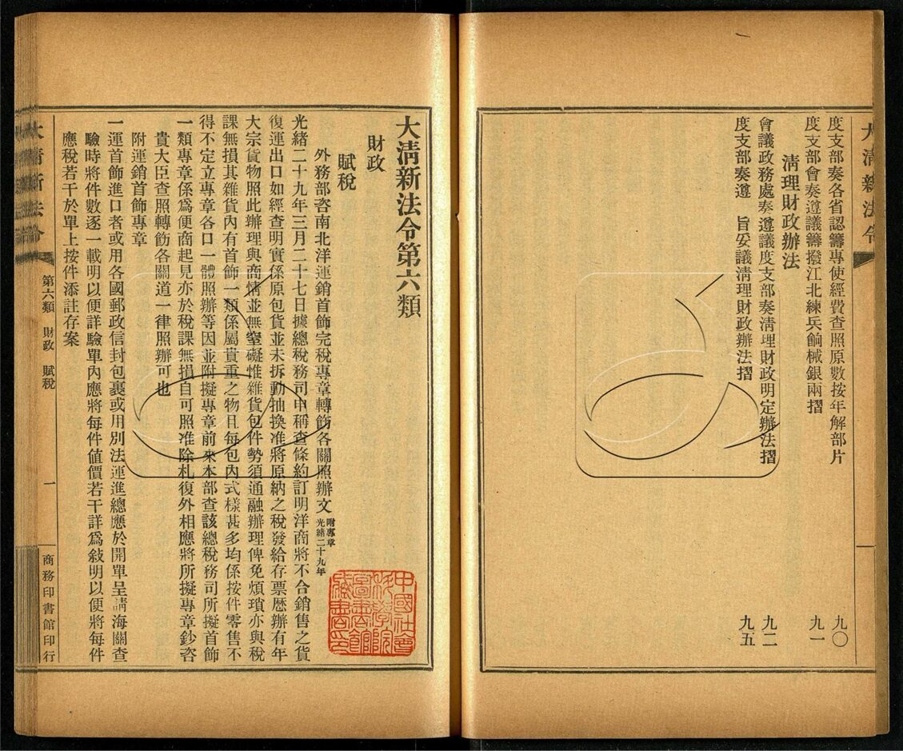 度支部奏各省認籌專使經費查照原數按年解部片 九〇
度支部會奏遵議籌撥江北練兵餉械銀兩摺 九一
清理財政辦法
會議政務處奏遵議度支部奏清理財政明定辦法摺 九二
度支部奏遵 旨妥議清理財政辦法摺 九五
大清新法令
大清新法令第六類
財政
賦稅
外務部咨南北洋運銷首飾完稅專章轉飭各關照辦文 附專章 光緒二十九年
光緒二十九年三月二十七日據總稅務司申稱查條約訂明洋商將不合銷售之貨
復運出口如經查明實係原包貨並未拆動抽換准將原納之稅發給存票歷辦有年
大宗貨物照此辦理與商情並無窒礙惟雜貨包件勢須通融辦理俾免煩瑣亦與稅
課無損其雜貨內有首飾一類係屬貴重之物且每包內式樣甚多均係按件零售不
得不定立專章各口一體照辦等因並附擬專章前來本部查該總稅務司所擬首飾
一類專章係爲便商起見亦於稅課無損自可照准除札復外相應將所擬專章鈔咨
貴大臣查照轉飭各關道一律照辦可也
附運銷首飾專章
一運首飾進口者或用各國郵政信封包裹或用別法運進總應於開單呈請海關查
驗時將件數逐一載明以便詳驗單內應將每件値價若干詳爲敍明以便將每件
應稅若干於單上按件添註存案
大清新法令 第六類 財政 賦稅 一 商務印書館印行